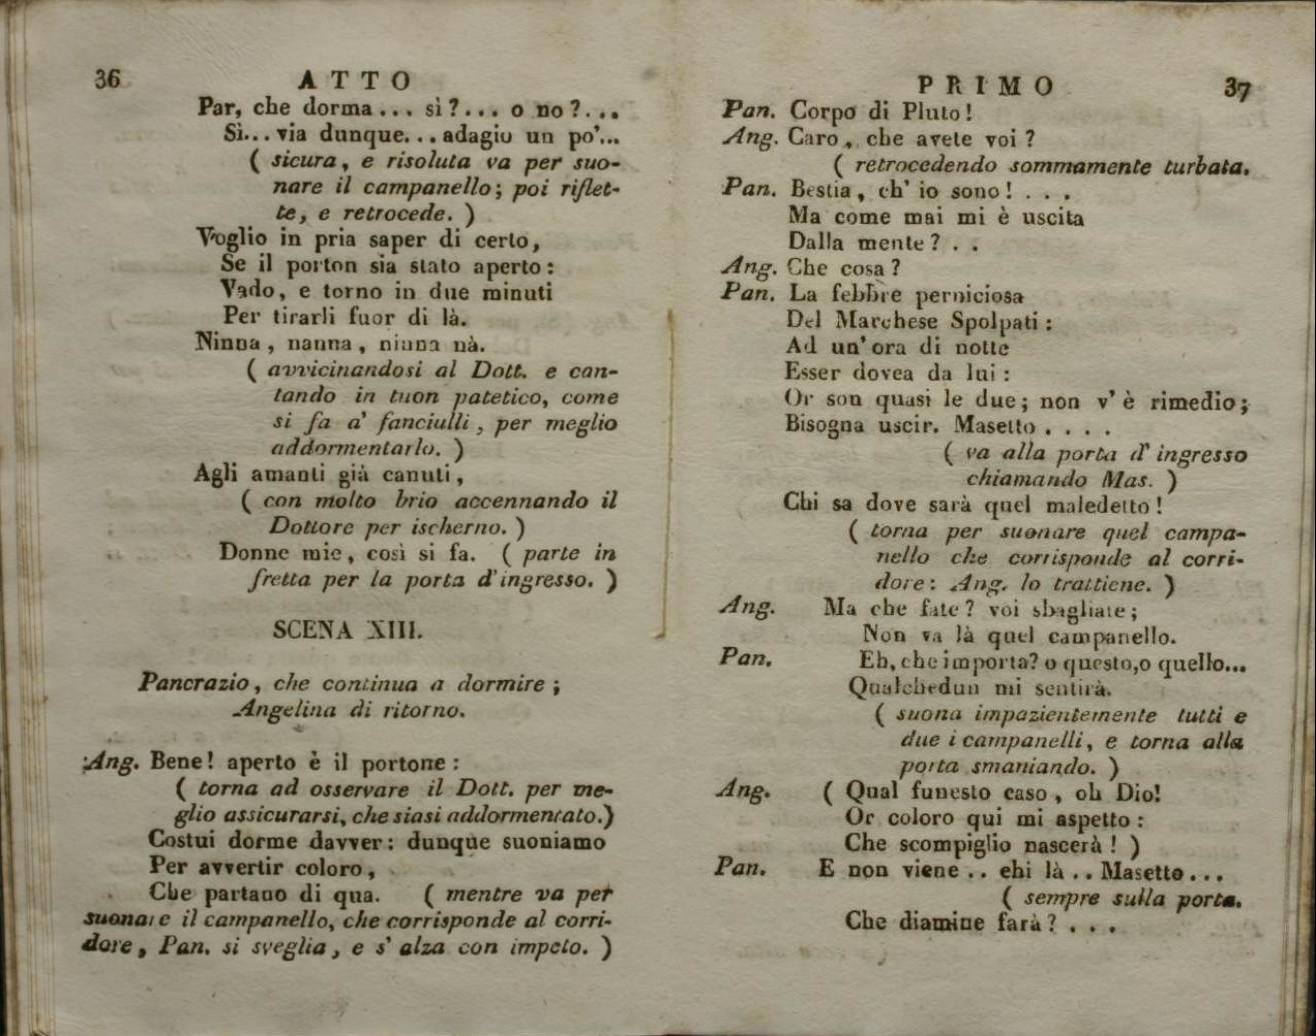 36 ATTO
Par, che dorma... sì?... o no?...
Sì... via dunque... adagio un po'...
( sicura, e risoluta va per suo-
nare il campanello; poi riflet-
te, e retrocede. )
Voglio in pria saper di certo,
Se il porton sia stato aperto:
Vado, e torno in due minuti
Per tirarli fuor di là.
Ninna, nanna, ninna nà.
( avvicinandosi al Dott. e can-
tando in tuon patetico, come
si fa a' fanciulli, per meglio
addormentarlo. )
Agli amanti già canuti,
( con molto brio accennando il
Dottore per ischerno. )
Donne mie, così si fa. ( parte in
fretta per la porta d'ingresso. )
SCENA XIII.
Pancrazio, che continua a dormire;
Angelina di ritorno.
Ang. Bene! aperto è il portone:
( torna ad osservare il Dott. per me-
glio assicurarsi, che siasi addormentato.)
Costui dorme davver: dunque suoniamo
Per avvertir coloro,
Che partano di qua. ( mentre va per
suonare il campanello, che corrisponde al corri-
dore, Pan. si sveglia, e s' alza con impeto. )
PRIMO 37
Pan. Corpo di Pluto!
Ang. Caro, che avete voi?
( retrocedendo sommamente turbata.
Pan. Bestia, ch' io sono!...
Ma come mai mi è uscita
Dalla mente?..
Ang. Che cosa?
Pan. La febbre perniciosa
Del Marchese Spolpati:
Ad un' ora di notte
Esser dovea da lui:
Or son quasi le due; non v' è rimedio;
Bisogna uscir. Masetto....
( va alla porta d' ingresso
chiamando Mas. )
Chi sa dove sarà quel maledetto!
( torna per suonare quel campa-
nello che corrisponde al corri-
dore: Ang. lo trattiene. )
Ang. Ma che fate? voi sbagliate;
Non va là quel campanello.
Pan. Eh, che importa? o questo, o quello...
Qualchedun mi sentirà.
( suona impazientemente tutti e
due i campanelli, e torna alla
porta smaniando. )
Ang. ( Qual funesto caso, oh Dio!
Or coloro qui mi aspetto:
Che scompiglio nascerà! )
Pan. E non viene.. ehi là.. Masetto...
( sempre sulla porta.
Che diamine farà?...